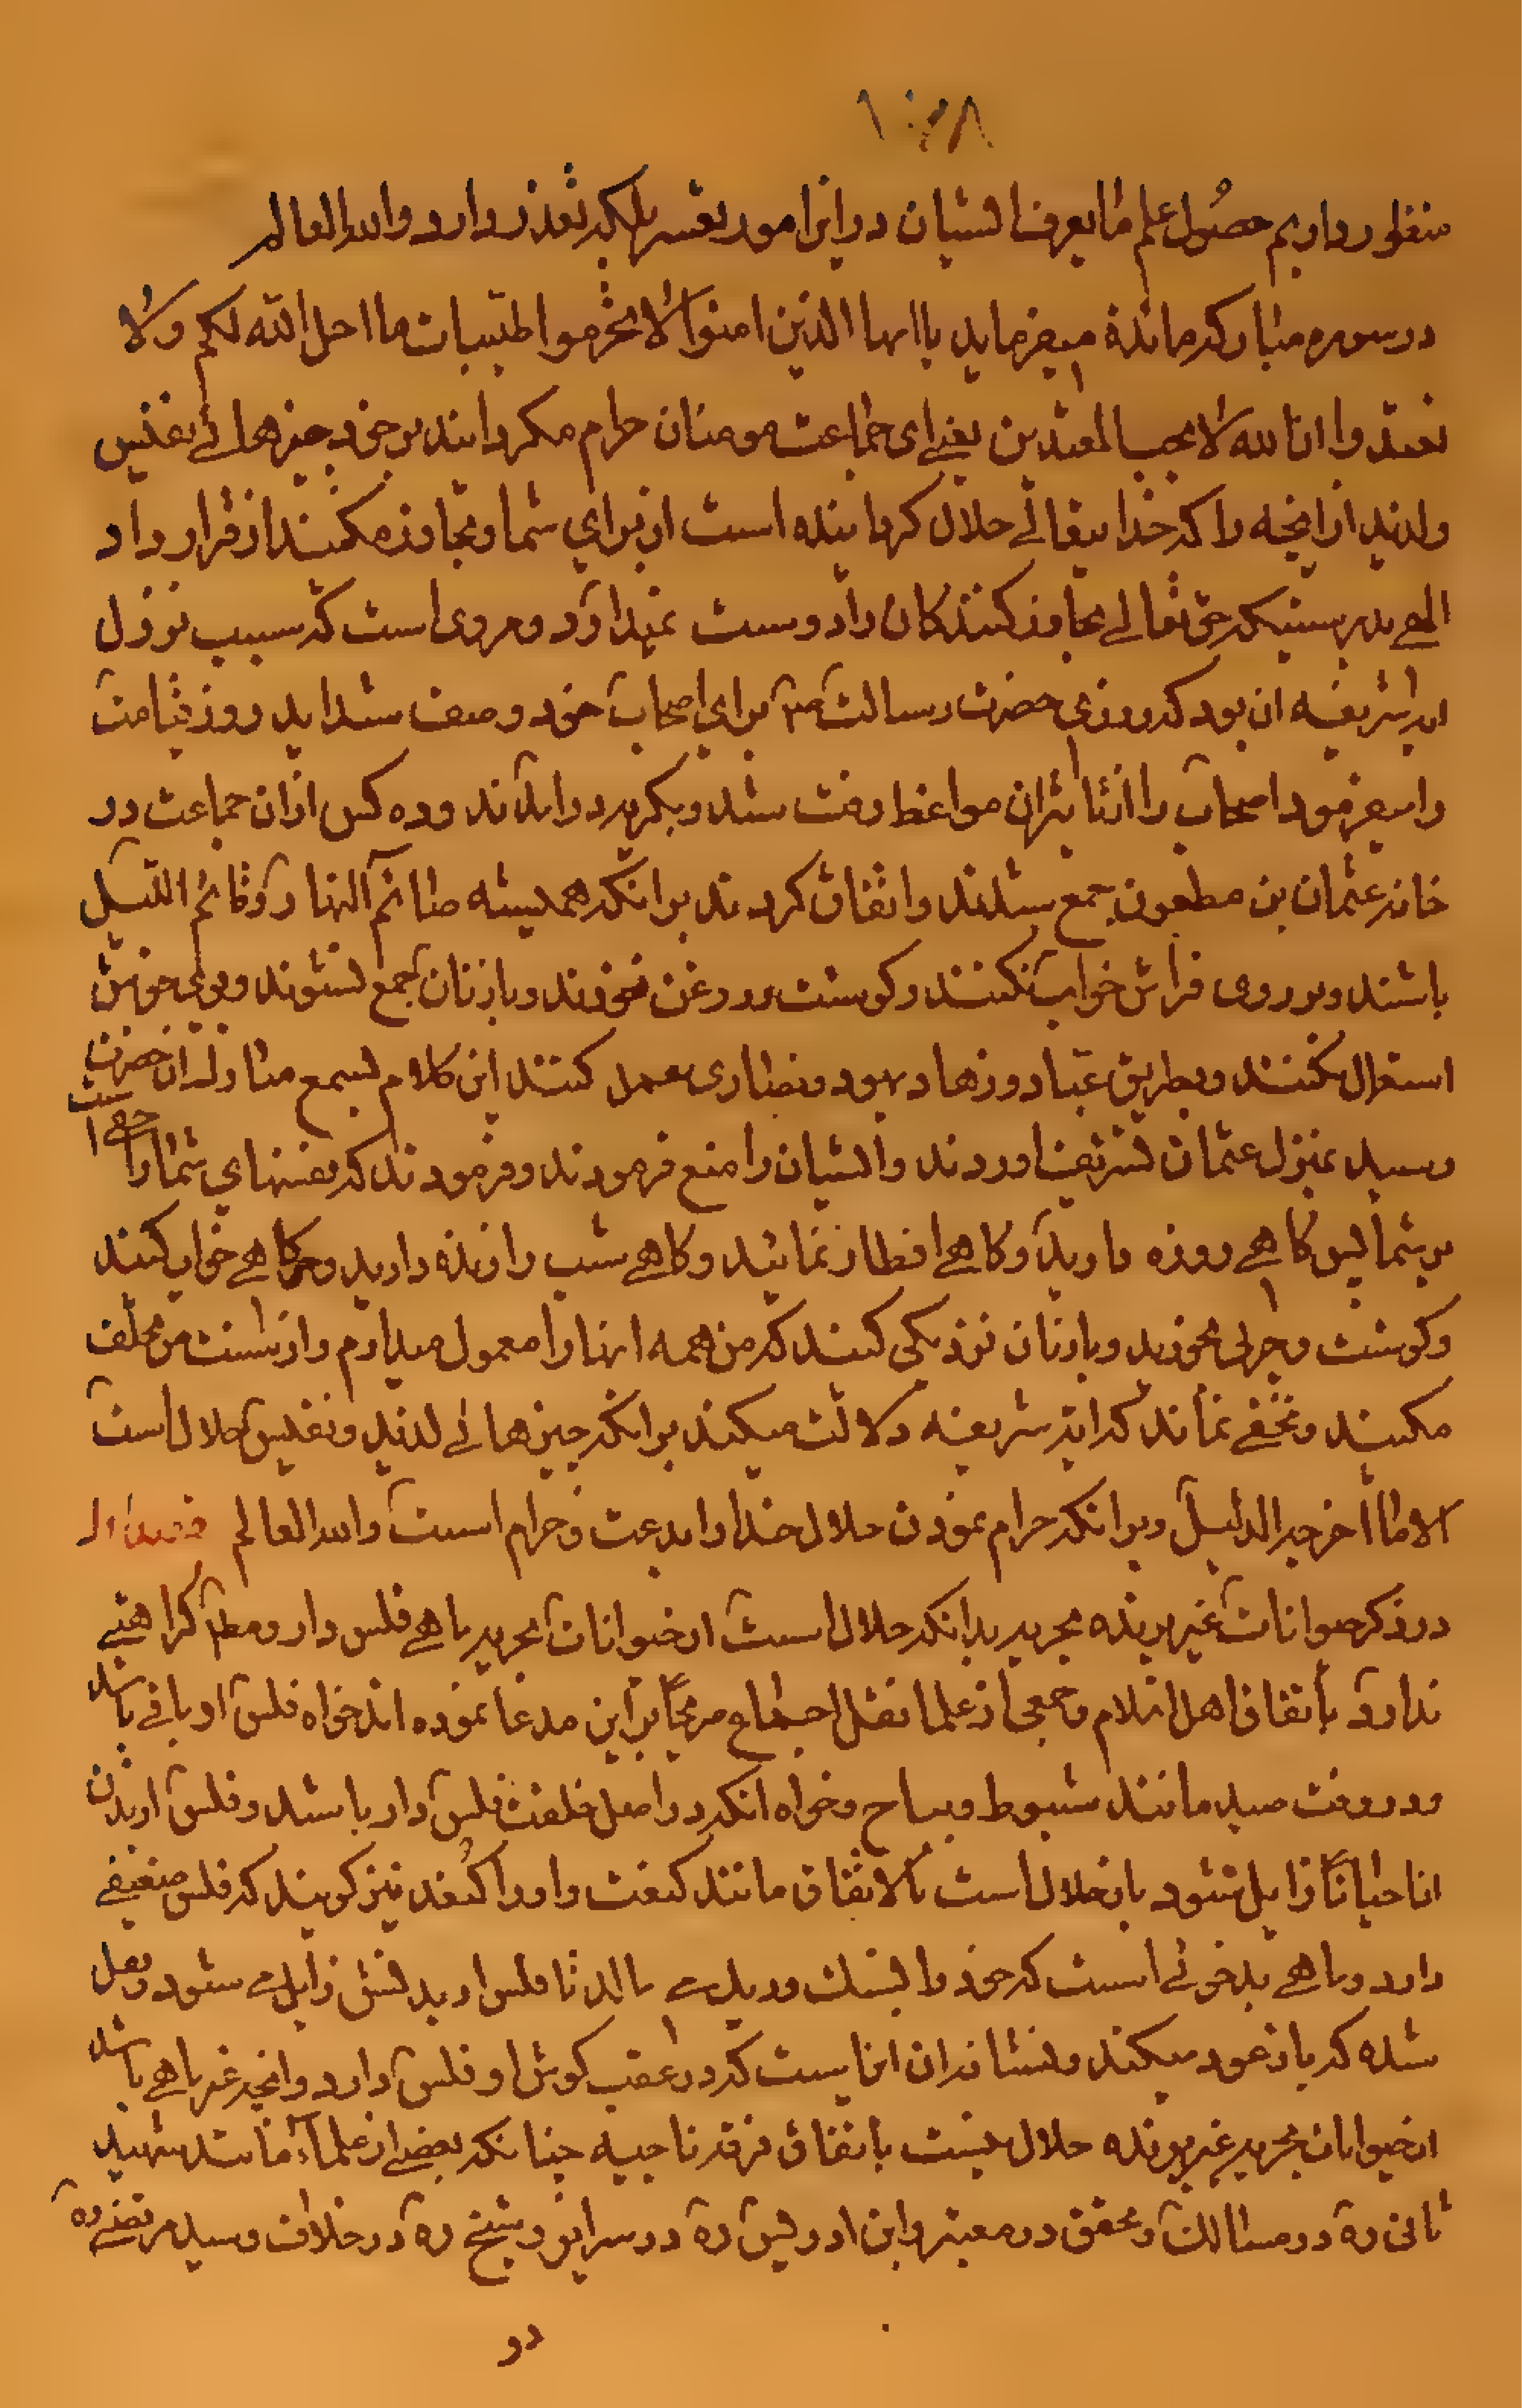 منظور داریم حصول علم ما یعرف الشیان در این امور تعسر بلکه تعذر دارد والله العالم
در سوره مبارکه مائدة میفرماید یا ایها الذین امنوا لا تحرموا طیبات ما احل الله لکم ولا
تعتدوا ان الله لا یحب المعتدین یعنے ای جماعت مومنان حرام مکردانید بر خود چیزهائے نفیس
ولذیذ از انچه را که خدا یتعالے حلال کردانیده است از برای شما و تجاوز مکنید از قرار داد
الهے بدرستیکه حق تعالے تجاوز کنندکان را دوست نمیدارد و مروی است که سبب نزول
ایه شریفه ان بود که روزی حضرت رسالت ص برای اصحاب خود وصف شداید روز قیامت
را میفرمود اصحاب را از تاثیر ان مواعظ رقت شد و بکریه در امدند و ده کس از ان جماعت در
خانه عثمان بن مظعون جمع شدند و اتفاق کردند بر انکه همیشه صائم النهار و قائم اللیل
باشند و بر روی فراش خواب نکنند و کوشت و روغن نخورند و با زنان جمع نشوند و بوی خوش
استعمال نکنند و بطریق عباد و زهاد یهود و نصاری عمل کنند این کلام بسمع مبارک ان حضرت
رسید بمنزل عثمان تشریف اوردند و الشیان را منع فرمودند و فرمودند که نفسهای شما را حقی است
بر شما پس کاهے روزه دارید و کاهے افطار نمائید و کاهے شب را زنده دارید و کاهے خواب کنید
و کوشت و چربی بخورید و با زنان نزدیکی کنید که من همه اینها را معمول میدارم و از سنت من تخلف
مکنید و مخفے نماند که ایه شریفه دلالت میکند بر انکه چیزهائے لذیذ و نفیس حلال است
الا ما اخرجه الدلیل و بر انکه حرام نمودن حلال خدا را بدعت و حرام است والله العالم فصل اول
در ذکر حیوانات غیر پرنده بحریه بدانکه حلال است از حیوانات بحریه ماهے فلس دار و مطلق کراهتے
ندارد باتفاق اهل اسلام و جمعی از علما نقل اجماع مرجحا بر این مدعا نموده اند خواه فلس او باقے باشد
در وقت صید مانند شبوط و بیاح و خواه انکه در اصل خلقت فلس دار باشد و فلس او بدن
ان احیانا زایل شود بان حلال است بالاتفاق مانند کنعت و او را کنعد نیز کویند که فلس ضعیفے
دارد و ماهے بدخوئے است که خود را بسنک و ریک مے مالد تا فلس او بدنش زایل مے شود و نقل
شده که باز عود میکند و نشانه ان اینست که در عقب کوش او فلس دارد و انچه غیر ماهے باشد
از حیوانات بحریه غیر پرنده حلال نیست باتفاق فرقه ناجیه چنانکه بعضے از علماء مانند شهید
ثانی ره در مسالک و محقق در معتبر و ابن ادریس ره در سرایر و شیخ ره در خلاف و سید مرتضے ره
در